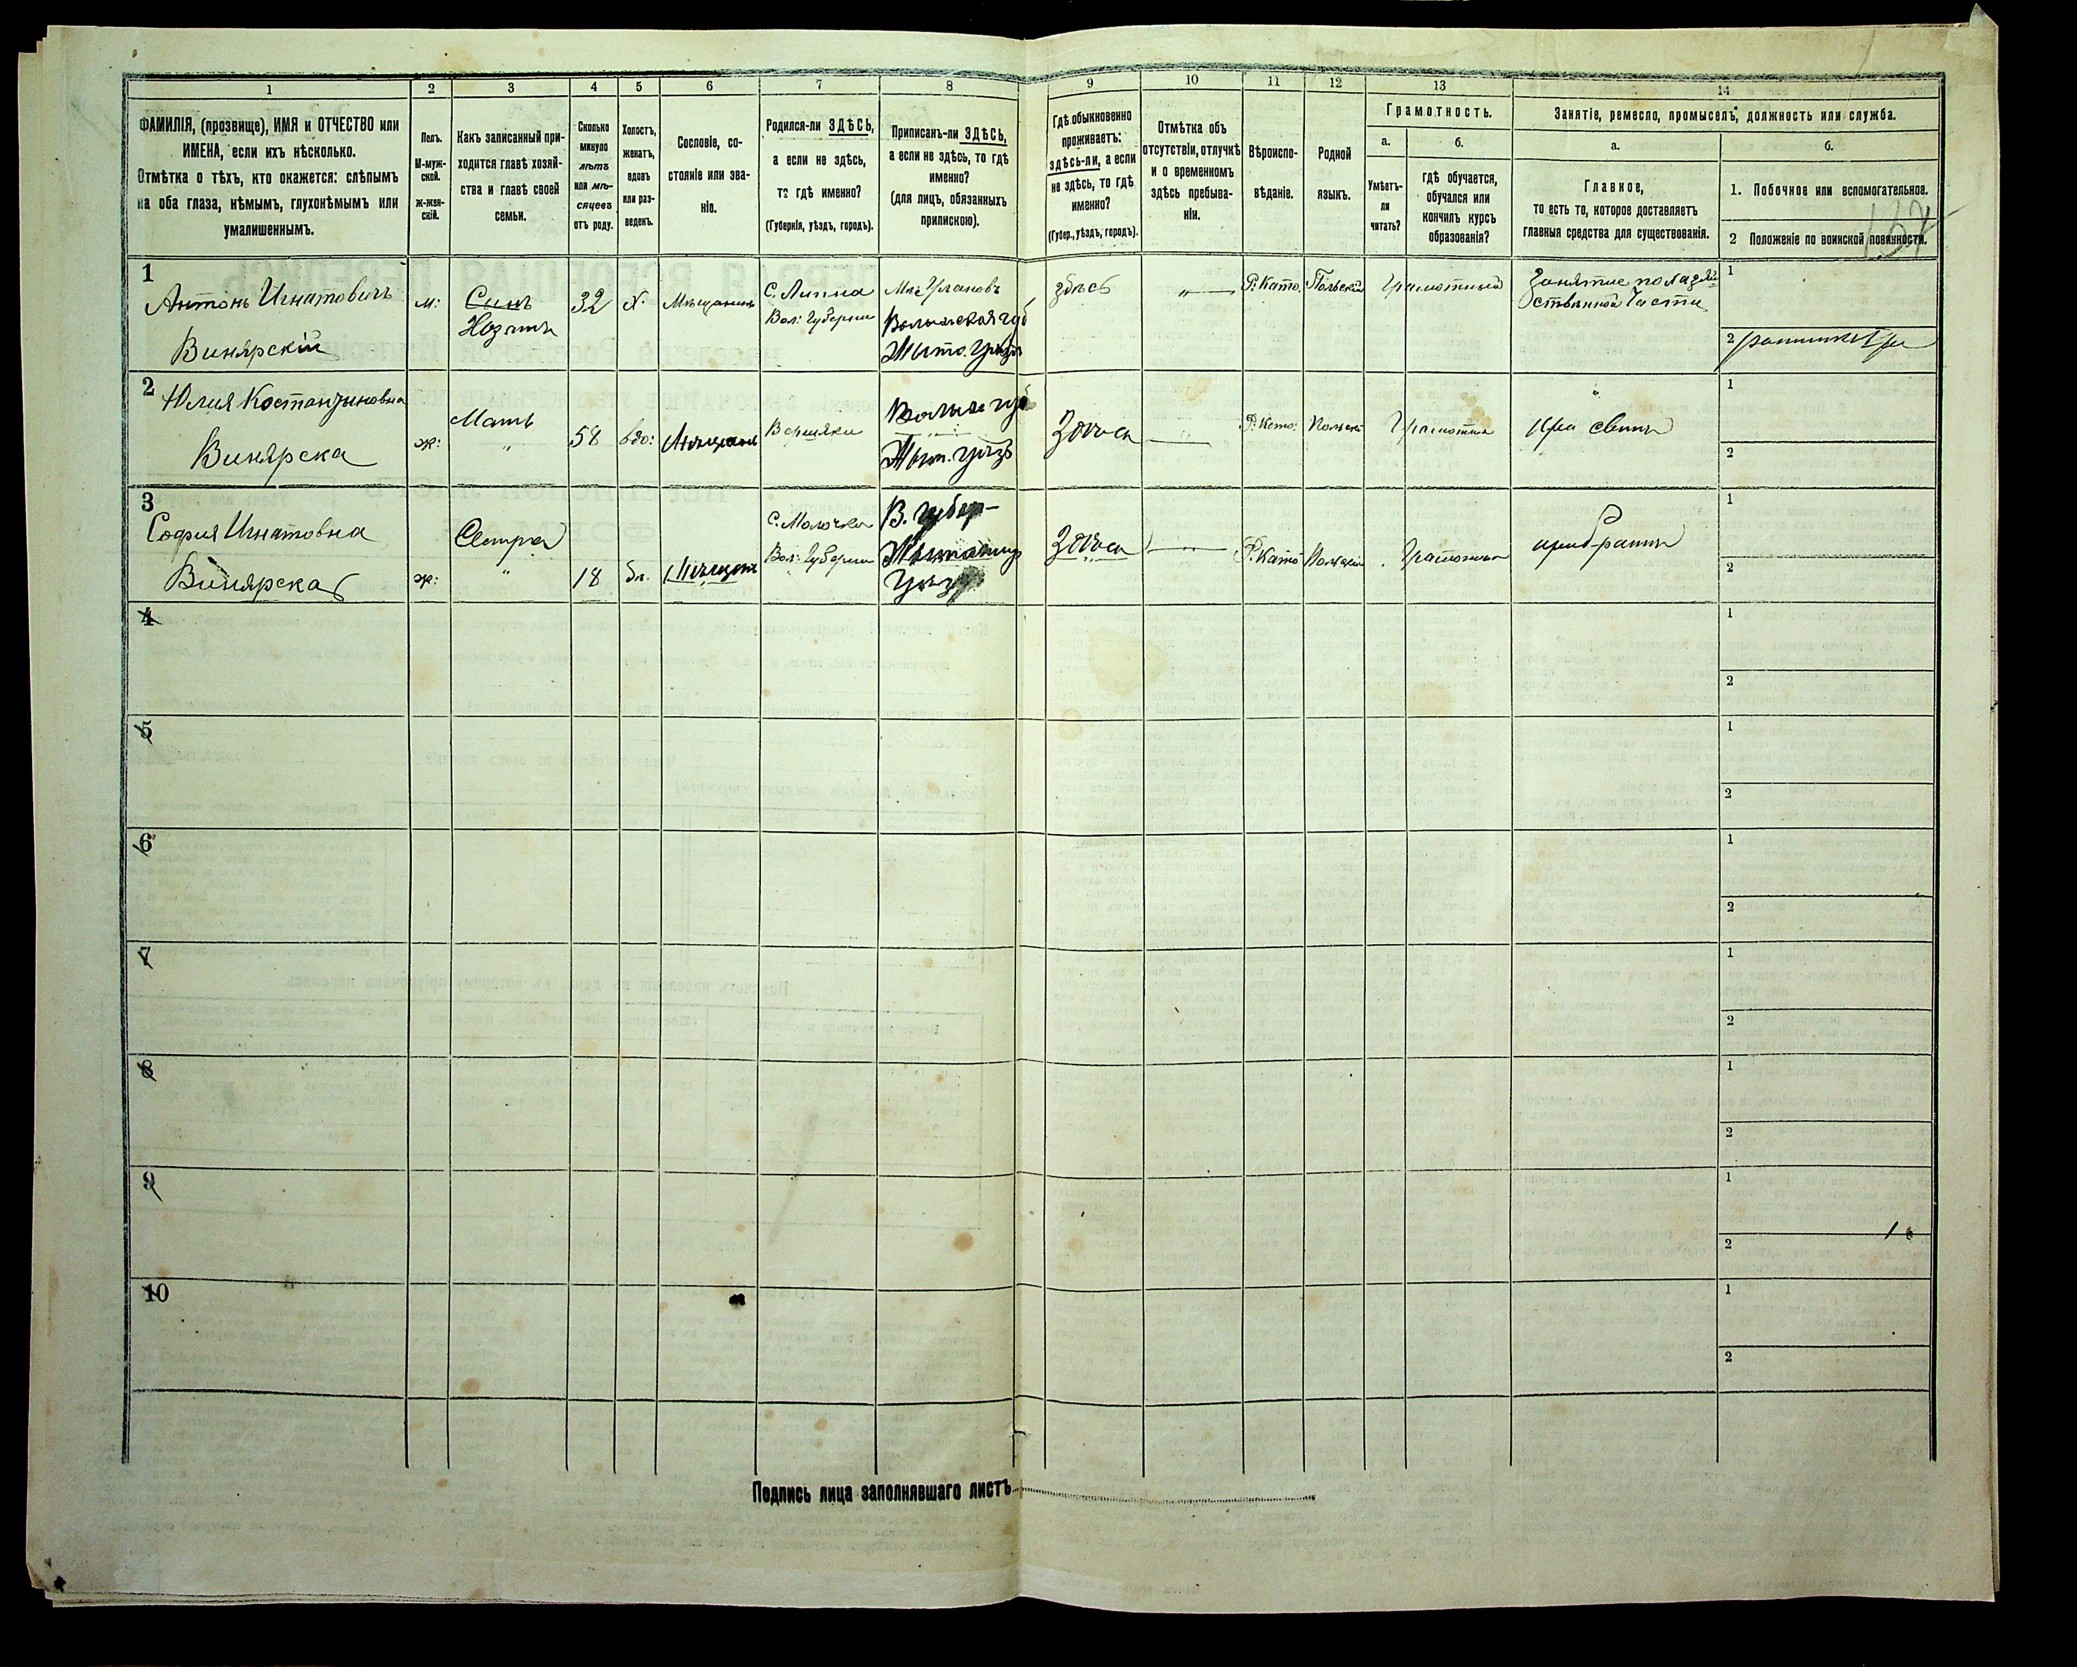 1 2 3 4 5 6 7 8 9 10 11 12 13 14
ФАМИЛІЯ, (прозвище), ИМЯ и ОТЧЕСТВО или
ИМЕНА, если ихъ нѣсколько.
Отмѣтка о тѣхъ, кто окажется: слѣпымъ
на оба глаза, нѣмымъ, глухонѣмымъ или
умалишеннымъ.
Полъ.
М-муж-
ской.
ж-жен-
скій.
Какъ записанный при-
ходится главѣ хозяй-
ства и главѣ своей
семьи.
Сколько
минуло
лѣтъ
или мѣ-
сяцевъ
отъ роду.
Холостъ,
женатъ,
вдовъ
или раз-
веденъ.
Сословіе, со-
стояніе или зва-
ніе.
Родился-ли ЗДѢСЬ,
а если не здѣсь,
то гдѣ именно?
(Губернія, уѣздъ, городъ).
Приписанъ-ли ЗДѢСЬ,
а если не здѣсь, то гдѣ
именно?
(для лицъ, обязанныхъ
припискою).
Гдѣ обыкновенно
проживаетъ:
здѣсь-ли, а если
не здѣсь, то гдѣ
именно?
(Губер., уѣздъ, городъ).
Отмѣтка объ
отсутствіи, отлучкѣ
и о временномъ
здѣсь пребыва-
ніи.
Вѣроиспо-
вѣданіе.
Родной
языкъ.
Грамотность.
а.
Умѣетъ-
ли
читать?
б.
гдѣ обучается,
обучался или
кончилъ курсъ
образованія?
Занятіе, ремесло, промыселъ, должность или служба.
а.
Главное,
то есть то, которое доставляетъ
главныя средства для существованія.
б.
1. Побочное или вспомогательное.
2 Положеніе по воинской повинности.
1
Антонъ Игнатовичъ
Винярскій
м:
Сынъ
32
х.
Мѣщанинъ
С. Липна
Вол: Губерни
Волынская губ
Жыто. Уѣздъ
здѣсь
"
Р. Като.
Польскій
Грамотный
1
2
2
Юлия Костанзыновна
Винярска
ж:
Мать
"
58
вдо:
Волын губ
Жыт. Уѣздъ
"
Р. Като:
Грамотна
при сынѣ
1
2
3
София Игнатовна
Винярска
ж:
Сестра
"
18
С. Молочка
Вол: Губерни
В. губер-
"
Р. Като
Польскій
Грамотна
при братѣ
1
2
4
1
2
5
1
2
6
1
2
7
1
2
8
1
2
9
1
2
10
1
2
Подпись лица заполнявшаго листъ